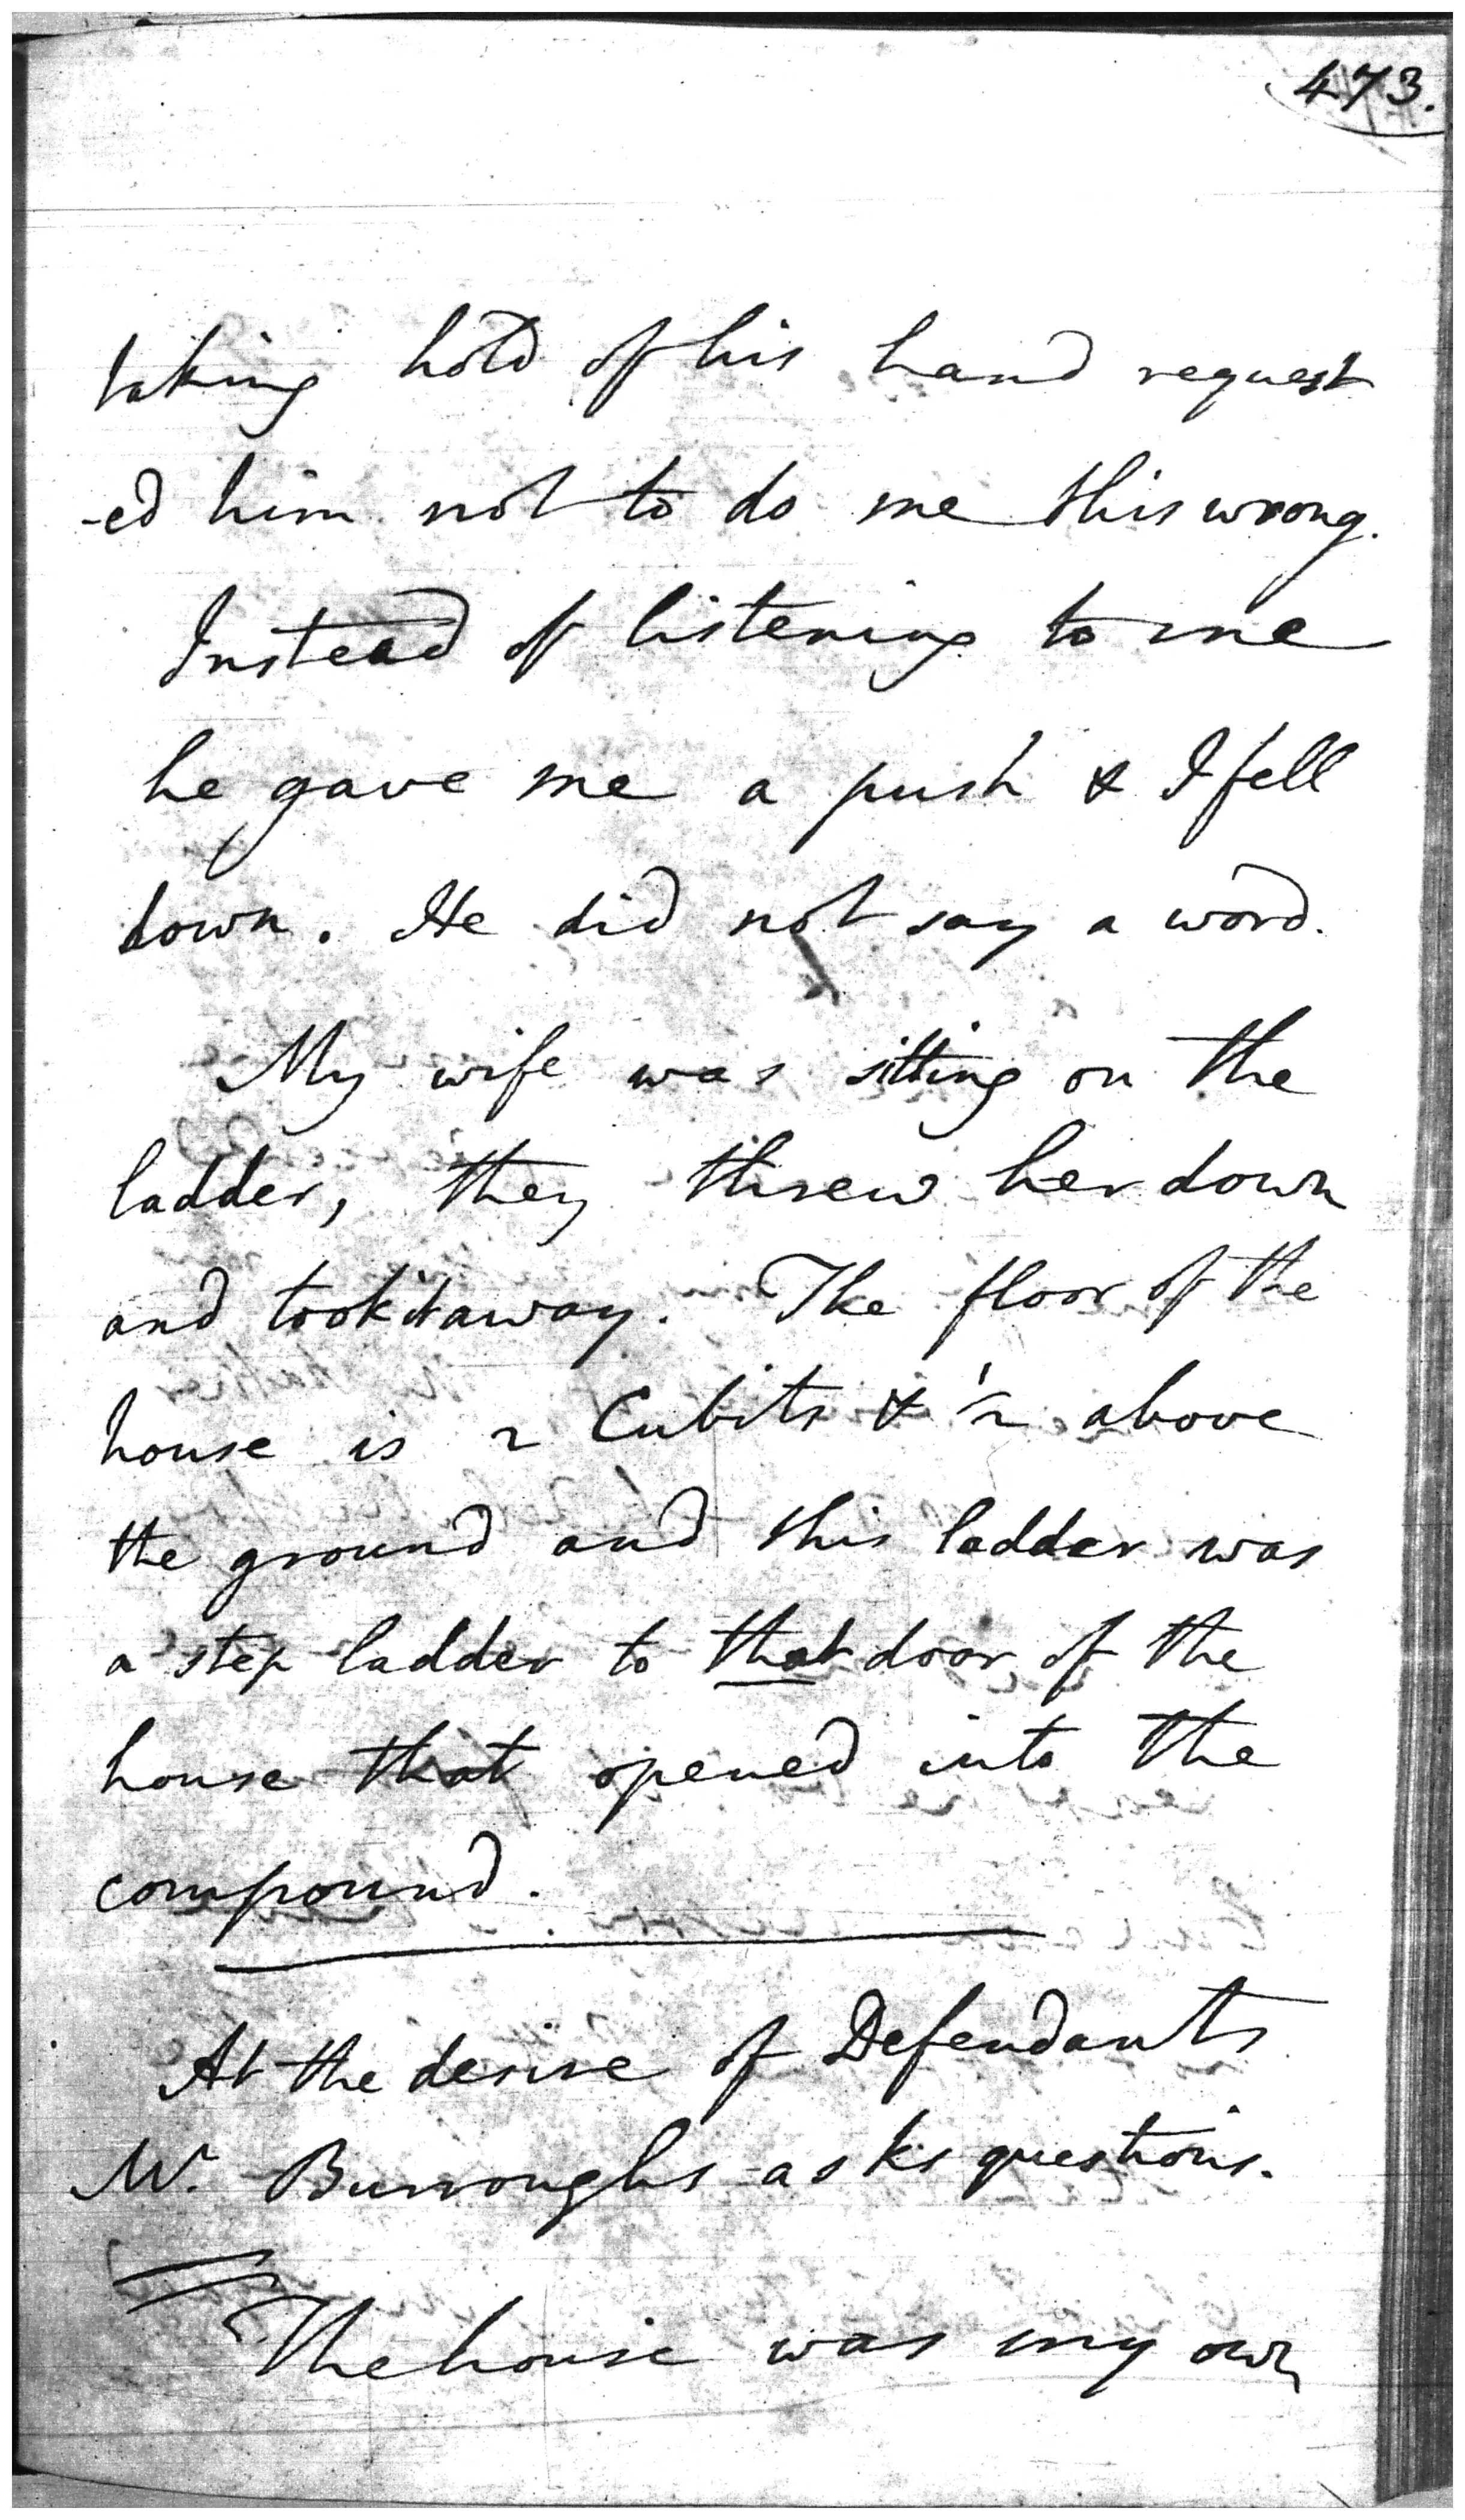 473.
taking hold of his hand request
-ed him not to do me this wrong.
Instead of listening to me
he gave me a push & I fell
down. He did not say a word.
My wife was sitting on the
ladder, they threw her down
and took it away. The floor of the
house is 2 Cubits & 1/2 above
the ground and this ladder was
a step ladder to that door of the
house that opened into the
compound.
At the desire of Defendants
Mr. Burroughs asks questions.
The house was my own